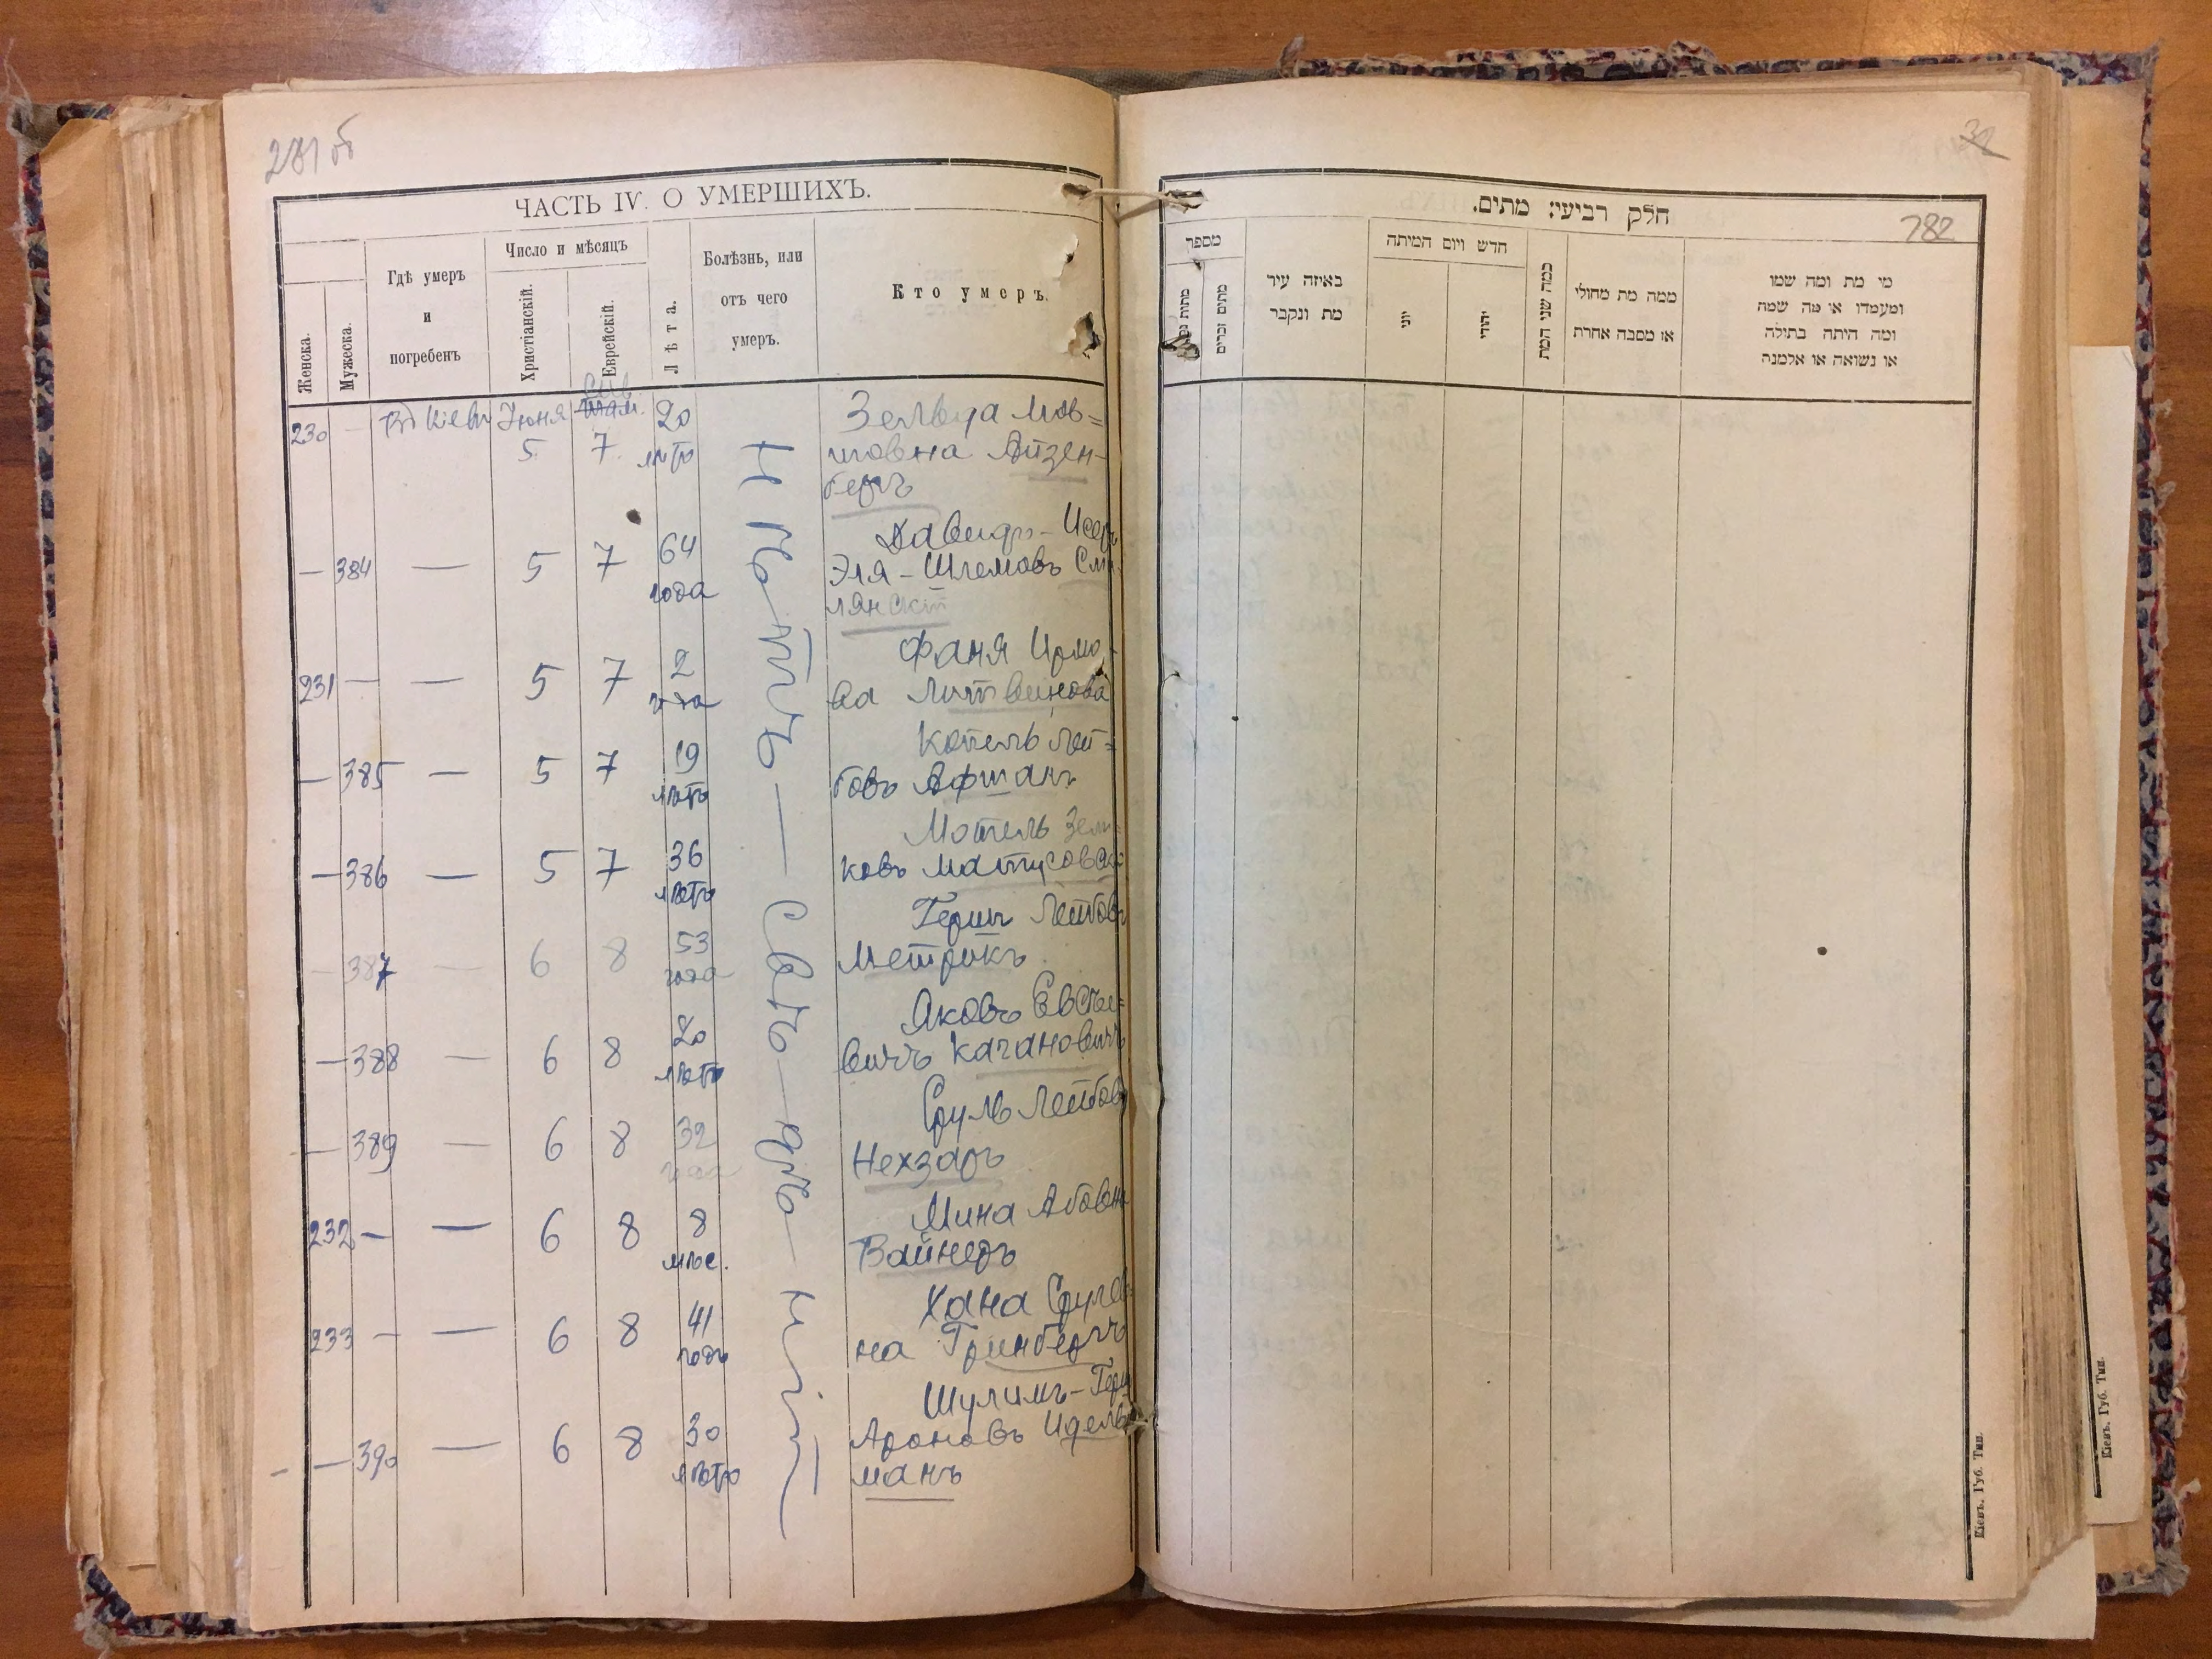 281 об
ЧАСТЬ IV. О УМЕРШИХЪ.
Женска.
Мужеска.
Гдѣ умеръ
и
погребенъ
Число и мѣсяцъ
Христіанскій.
Еврейскій.
Лѣта.
Болѣзнь, или
отъ чего
умеръ.
Кто умеръ.
230 — Въ Кіевѣ Іюня 5 Сив. 7 20 лѣтъ
Мов=
шовна Айзен-
бергъ
— 384 — 5 7 64 года
Давидъ-Исер
Эля-Шлемовъ См
лянскій
231 — — 5 7 2 года
Фаня
ва Литвинова
— 385 — 5 7 19 лѣтъ
Копель Лей=
бовъ
— 386 — 5 7 36 лѣтъ
Мотель Зел
ковъ Матусовск
— 387 — 6 8 53 года
Герш Лейбовъ
Метрикъ
— 388 — 6 8 20 лѣтъ
Яковъ Евсѣе=
вичъ Кагановичъ
— 389 — 6 8 32 года
Сруль Лейбовъ
Нехзаръ
232 — — 6 8 8 мѣс.
Мина Абовна
Вайнеръ
233 — — 6 8 41 годъ
Хана Срулев
на Гринбергъ
— 390 — 6 8 30 лѣтъ
Шулимъ-Герш
Ароновъ Идель
манъ
32
782
חלק רביעי: מתים.
מספר
מתים זכרים
באיזה עיר
מת ונקבר
חדש ויום המיתה
יוני
יהודי
כמה שני המת
ממה מת מחולי
או מסבה אחרת
מי מת ומה שמו
ומעמדו או מה שמה
ומה היתה בתולה
או נשואה או אלמנה
Кіевъ, Губ. Тип.
Кіевъ, Губ. Тип.